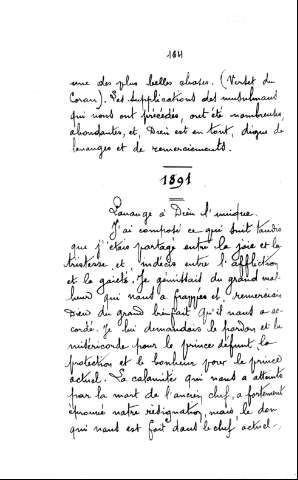 164
une des plus belles choses. (Verset du
Coran). Les supplications des musulmans
qui nous ont précédés, ont été nombreuses,
abondantes, et, Dieu est en tout, digne de
louanges et de remerciements.
1891
Louange à Dieu l'unique.
J'ai composé ce qui suit tandis
que j'étais partagé entre la joie et la
tristesse et indécis entre l'affliction
et la gaieté. Je gémissait du grand mal-
heur qui nous a frappés et remerciais
Dieu du grand bienfait qu'il nous a ac-
cordé. Je lui demandais le pardon et la
miséricorde pour le prince défunt la
protection et le bonheur pour le prince
actuel. La calamité qui nous a atteints
par la mort de l'ancien chef, a fortement
éprouvé notre résignation, mais le don
qui nous est fait dans le chef actuel